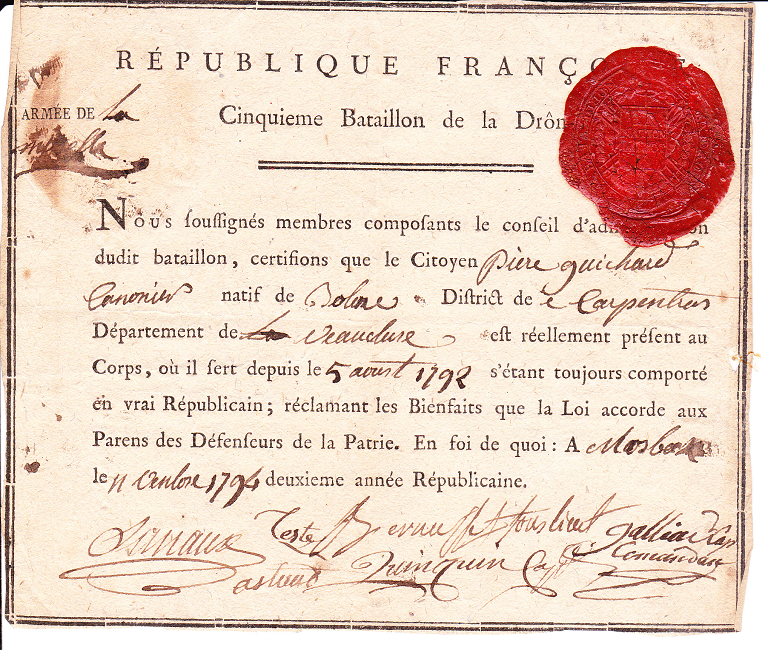 RÉPUBLIQUE FRANÇ
ARMÉE DE la
Cinquieme Bataillon de la Drôm
Nous ſouſſignés membres compoſants le conſeil d'ad on
dudit bataillon, certifions que le Citoyen piere guichard
Canonier natif de Bolene District de Carpentras
Département de la veaucluse est réellement préſent au
Corps, où il ſert depuis le 5 aoust 1792 s'étant toujours comporté
en vrai Républicain; réclamant les Bienfaits que la Loi accorde aux
Parens des Défenſeurs de la Patrie. En foi de quoi: A
le 11 1794 deuxieme année Républicaine.
Teste
Quinquin